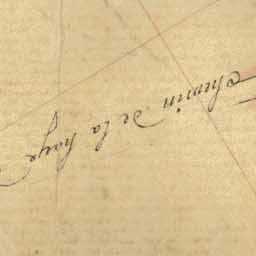 chemin de la haye